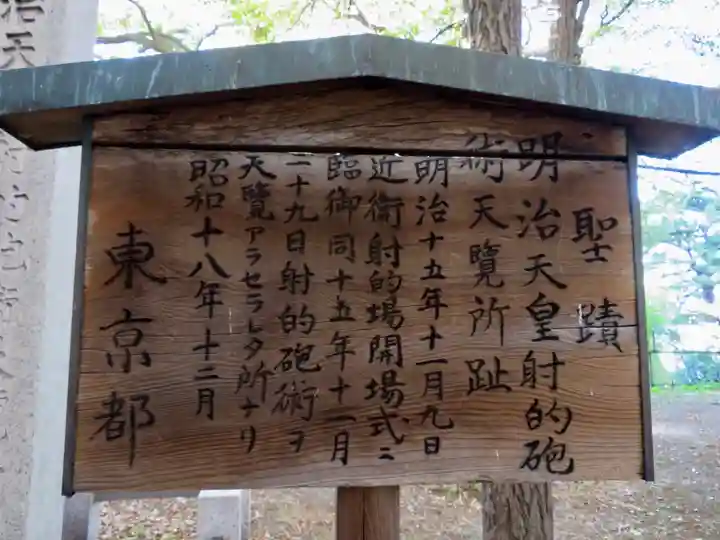 聖蹟
明治天皇射的砲
術天覧所趾
明治十五年十一月九日
近衛射的場開場式ニ
臨御同十五年十一月
二十九日射的砲術ヲ
天覧アラセラレタ所ナリ
昭和十八年十二月
東京都
治天